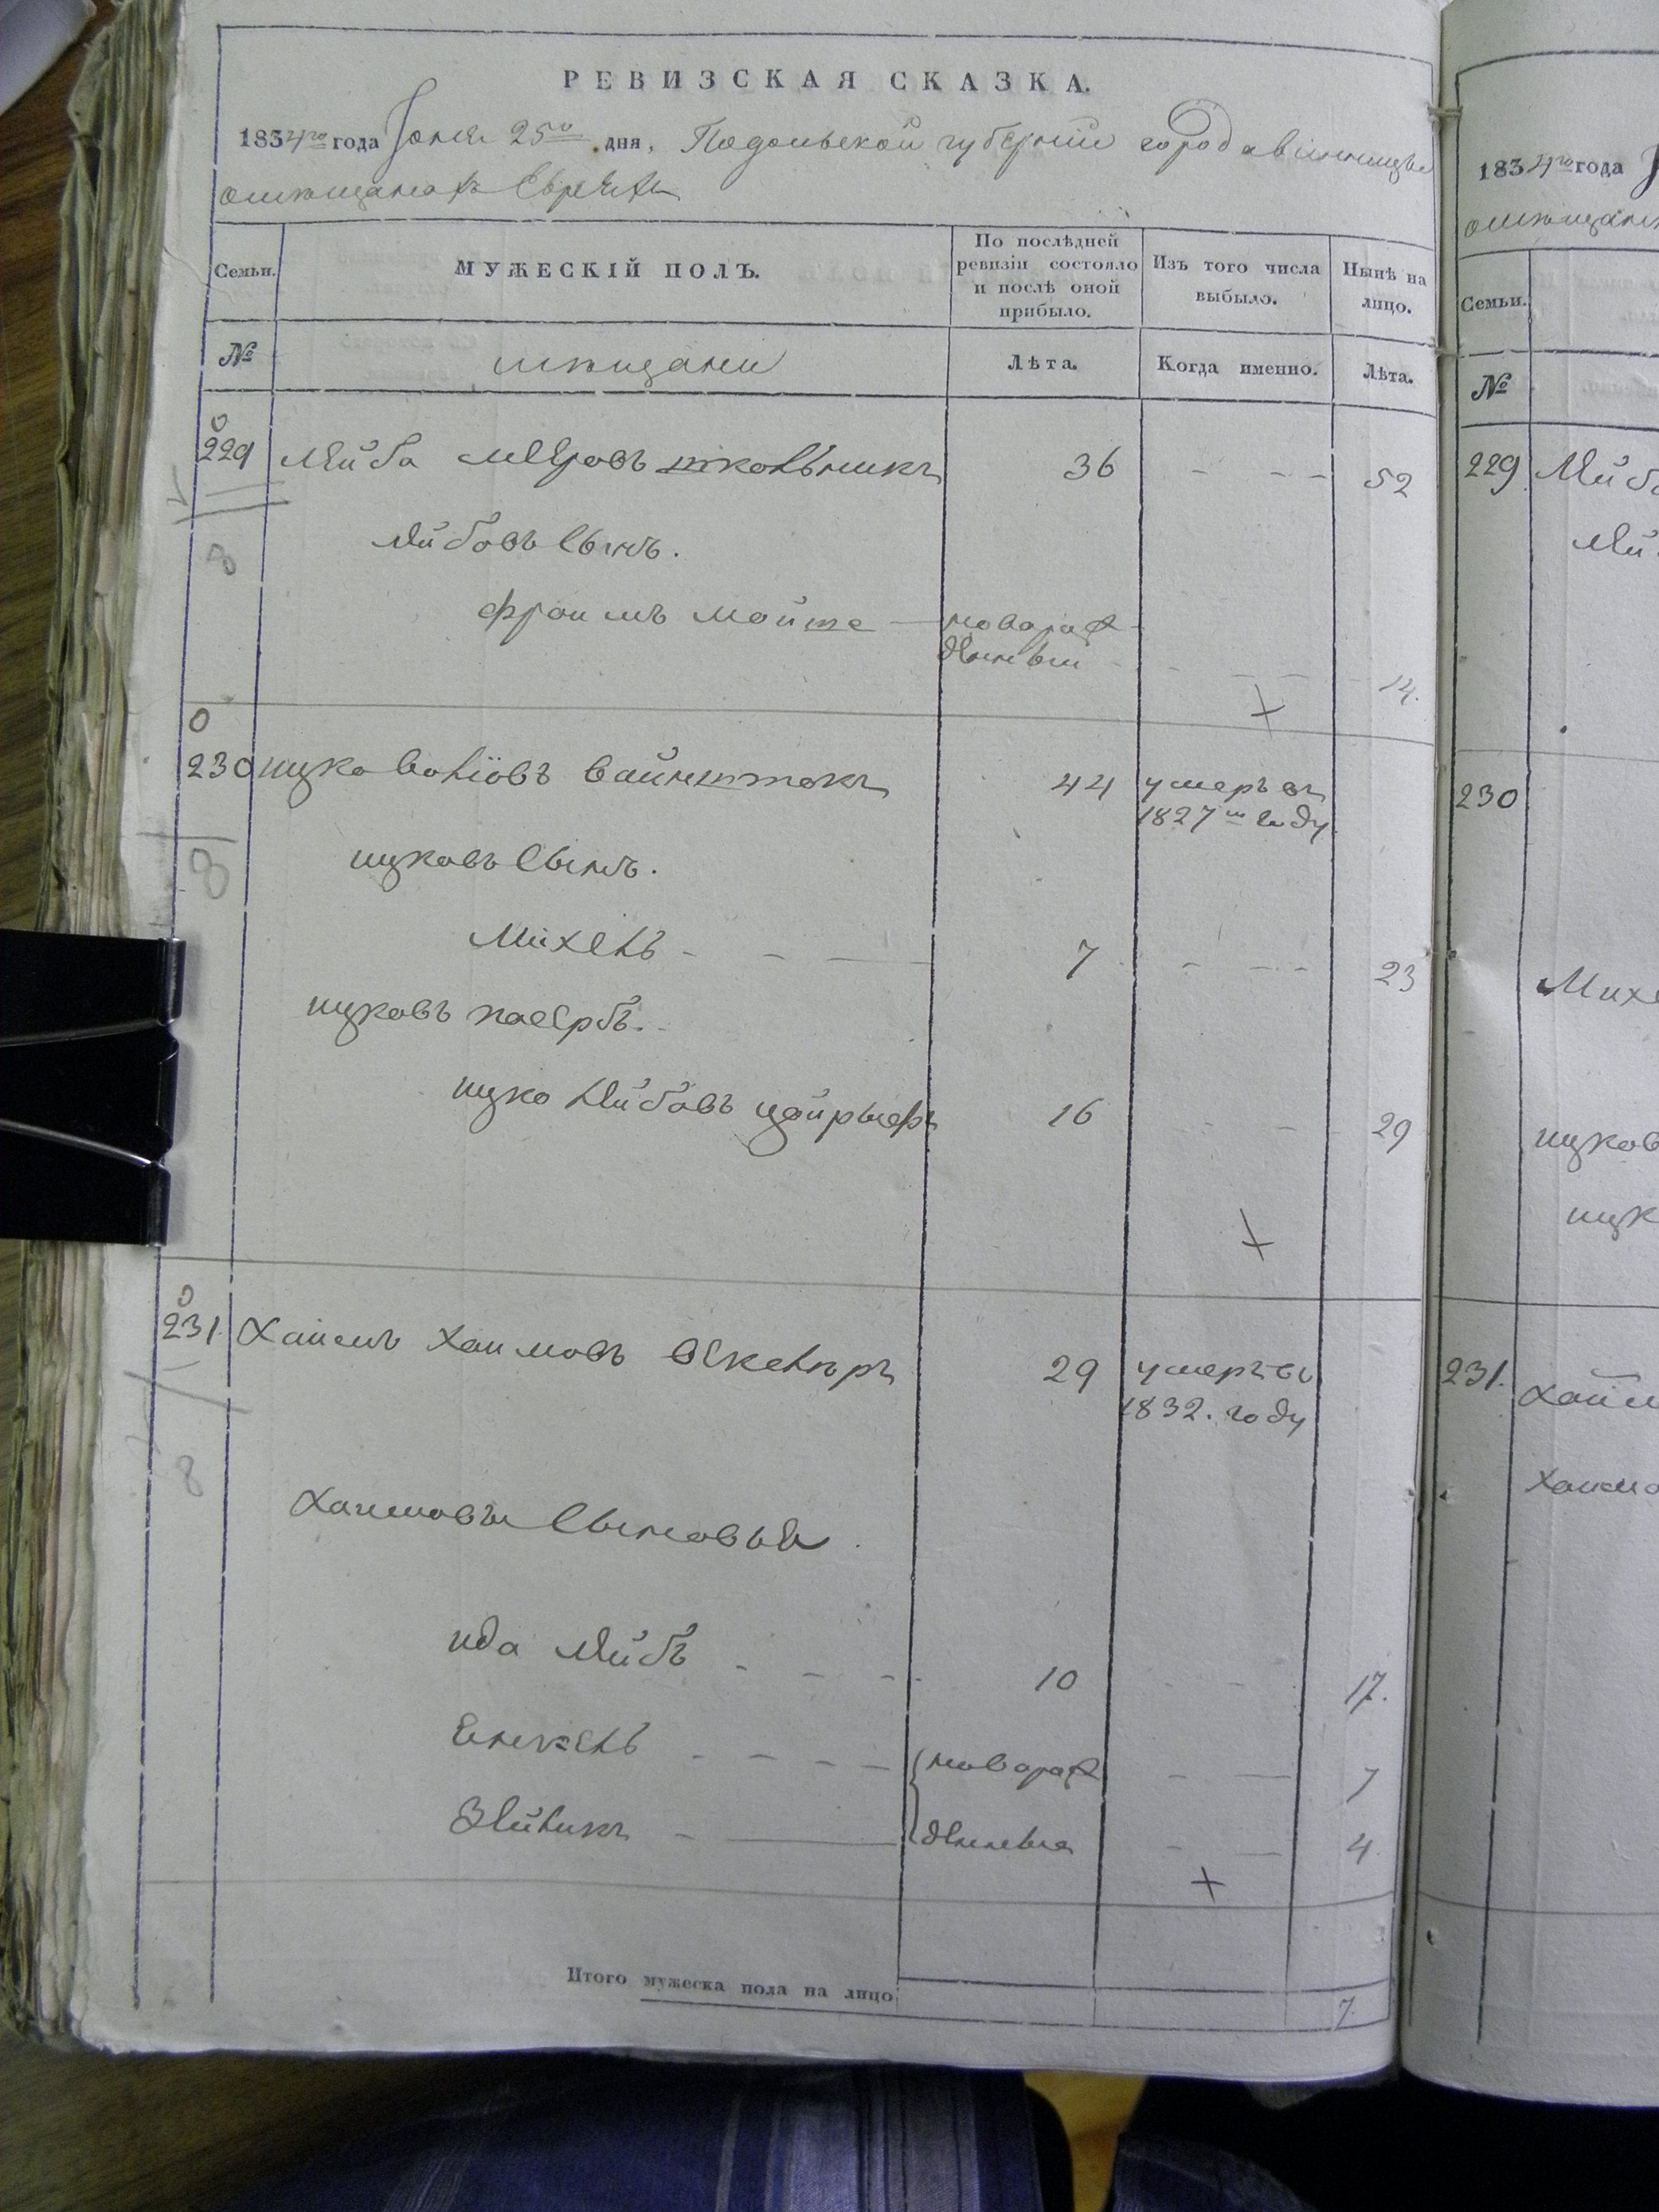 РЕВИЗСКАЯ СКАЗКА.
1834го года Іюня 25го дня, Подольской губерніи города винницы
о мѣщанахъ Евреяхъ
Семьи. МУЖЕСКІЙ ПОЛЪ. По послѣдней ревизіи состояло и послѣ оной прибыло. Изъ того числа выбыло. Нынѣ на лицо.
№ мѣщане Лѣта. Когда именно. Лѣта.
229 Лейба Мееровъ школьникъ 36 - - - 52
8 Лейбовъ Сынъ.
фроимъ мойше — новорож
денный - - - - 14.
230 ицко волїовъ вайнштокъ 44 умеръ въ
1827м году
8 ицковъ Сынъ.
Михель - - — 7 - - - 23
ицковъ
ицко Лейбовъ 16 - - 29
231. Хаимъ Хаимовъ 29 умеръ въ
1832. году
8 Хаимовы Сыновья.
ида Лейбъ - - - 10 - - 17.
- - - - новорож - — 7
Зейликъ - — денные - — 4.
Итого мужеска пола на лицо 7.
1834го года
о мѣщан
Семьи.
№
229
Лей
230
Михе
ицков
ицк
231. Хаим
Хаимо